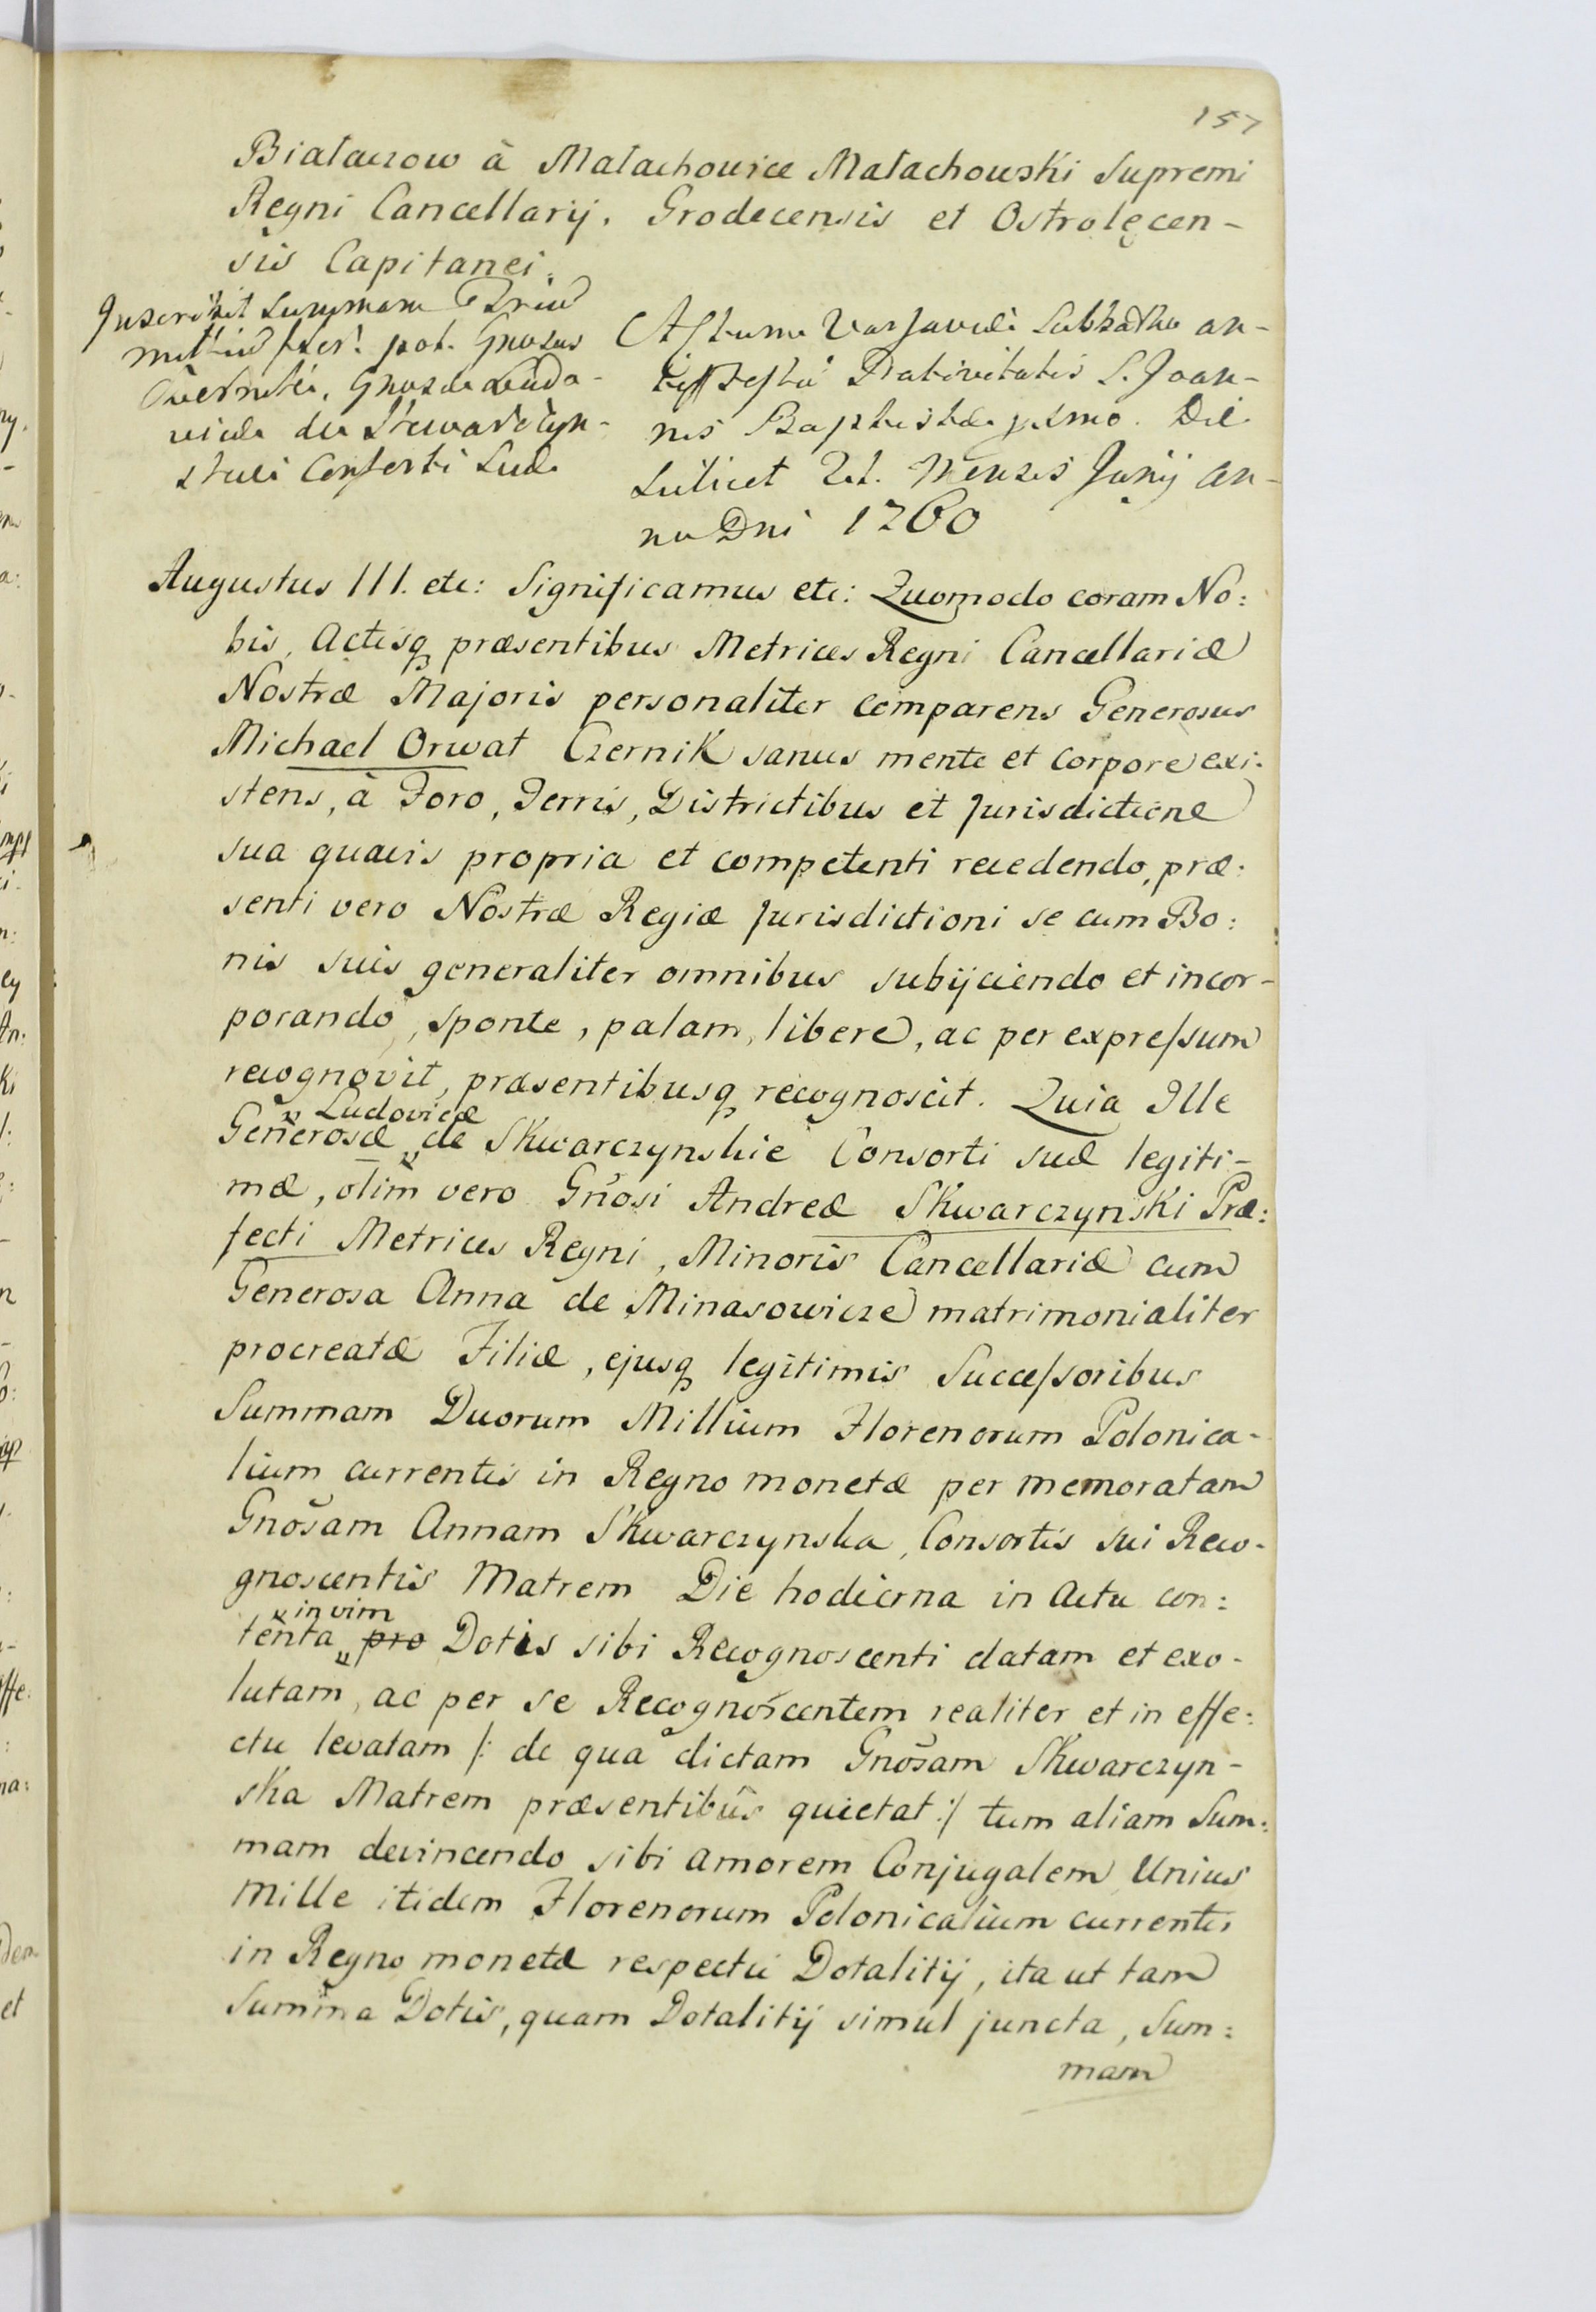 157
Białaczow à Małachowice Małachowski Supremi
Regni Cancellarij, Grodecensis et Ostrolęcen-
sis Capitanei.
Inscribit Summam Trium
mill: flor: pol. Gnosus
Czernik, Gnosæ Ludo-
vicæ de Skwarczyn-
skie Consorti Suæ
Actum Varsaviæ Sabbatho an-
te Festum Nativitatis S. Joan-
nis Baptistæ pxmo. Die
Scilicet 21. Mensis Junij An-
no Dni 1760
Augustus III. etc: Significamus etc: Quomodo coram No:
bis, Actisq præsentibus Metrices Regni Cancellariæ
Nostræ Majoris personaliter comparens Generosus
Michael Orwat Czernik sanus mente et corpore exi:
stens, à Foro, Terris, Districtibus et Jurisdictione
sua quavis propria et competenti recedendo, præ:
senti vero Nostræ Regiæ Jurisdictioni se cum Bo:
nis suis generaliter omnibus subijciendo et incor-
porando, sponte, palam, libere, ac per expressum
recognovit, præsentibusq recognoscit. Quia Ille
Ludovicæ
Generosæ de Skwarczynskie Consorti suæ legiti-
mæ, olim vero Gnosi Andreæ Skwarczynski Præ:
fecti Metrices Regni, Minoris Cancellariæ cum
Generosa Anna de Minasowicze matrimonialiter
procreatæ Filiæ, ejusq legitimis Successoribus
Summam Duorum Millium Florenorum Polonica-
lium currentis in Regno monetæ per memoratam
Gnosam Annam Skwarczynska, Consortis sui Reco-
gnoscentis Matrem Die hodierna in Actu con:
in vim
tenta pro Dotis sibi Recognoscenti datam et exo-
lutam, ac per se Recognoscentem realiter et in effe:
ctu levatam /: de qua dictam Gnosam Skwarczyn-
ska Matrem præsentibus quietat :/ tum aliam Sum:
mam devincendo sibi amorem Conjugalem Unius
Mille itidem Florenorum Polonicalium currentis
in Regno monetæ respectu Dotalitij, ita ut tam
Summa Dotis, quam Dotalitij simul juncta, Sum:
mam